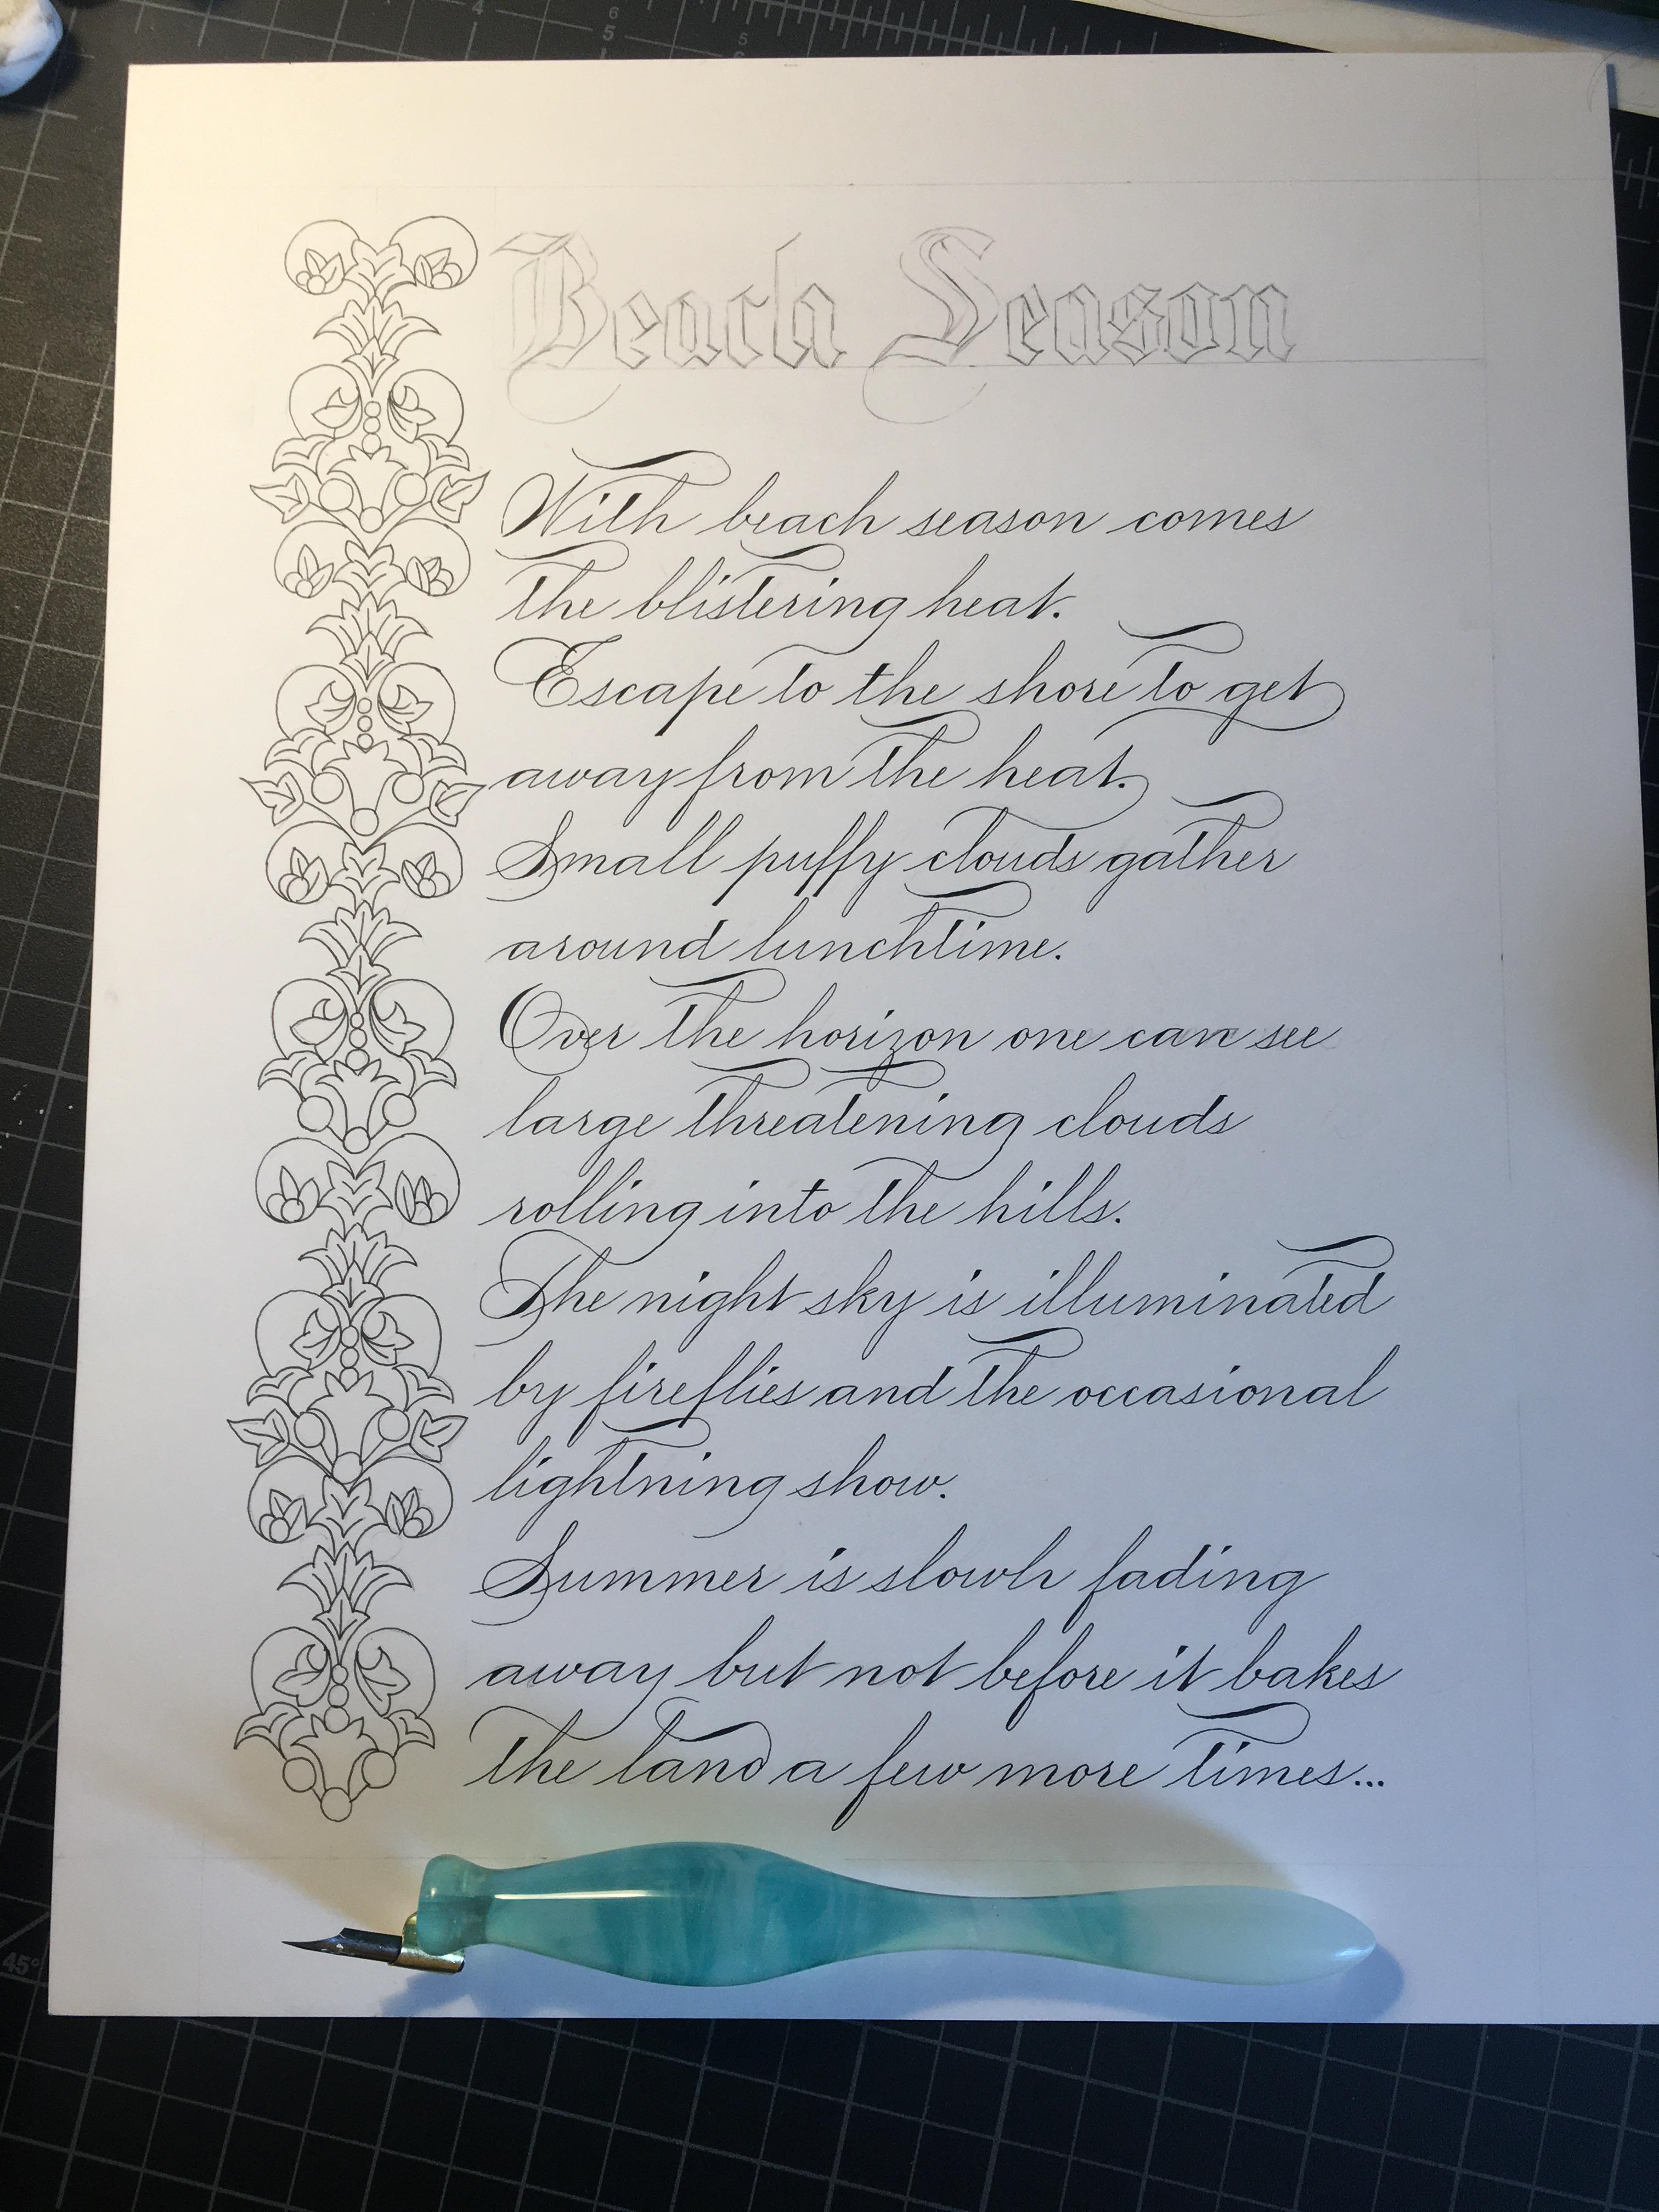 Beach Season
With beach season comes
the blistering heat.
Escape to the shore to get
away from the heat.
Small puffy clouds gather
around lunchtime.
Over the horizon one can see
large threatening clouds
rolling into the hills.
The night sky is illuminated
by fireflies and the occasional
lightning show.
Summer is slowly fading
away but not before it bakes
the land a few more times...
45°